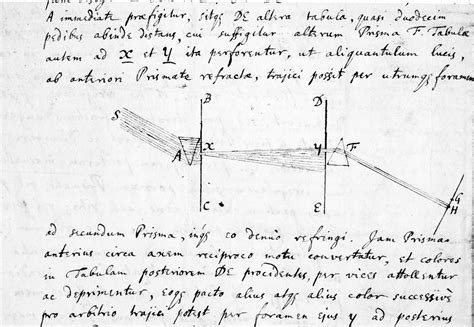 A immediate præfigitur, sitqꝫ DE altera tabula, quasi duodecim
pedibus abinde distans, cui suffigitur alterum Prisma F. Tabulæ
autem ad x et y ita perforentur, ut aliquantulum lucis,
ab anteriori Prismate refractæ, trajici possit per utrumqꝫ foramen
B
D
S
A
x
y
F
G
H
C
E
ad secundum Prisma, inqꝫ eo denuò refringi. Jam Prisma
anterius circa axem reciproco motu convertatur, et colores
in Tabulam posteriorem DE procidentes, per vices attollentur
ac deprimentur, eoqꝫ pacto alius atqꝫ alius color successivè
pro arbitrio trajici potest per foramen ejus y ad posterius